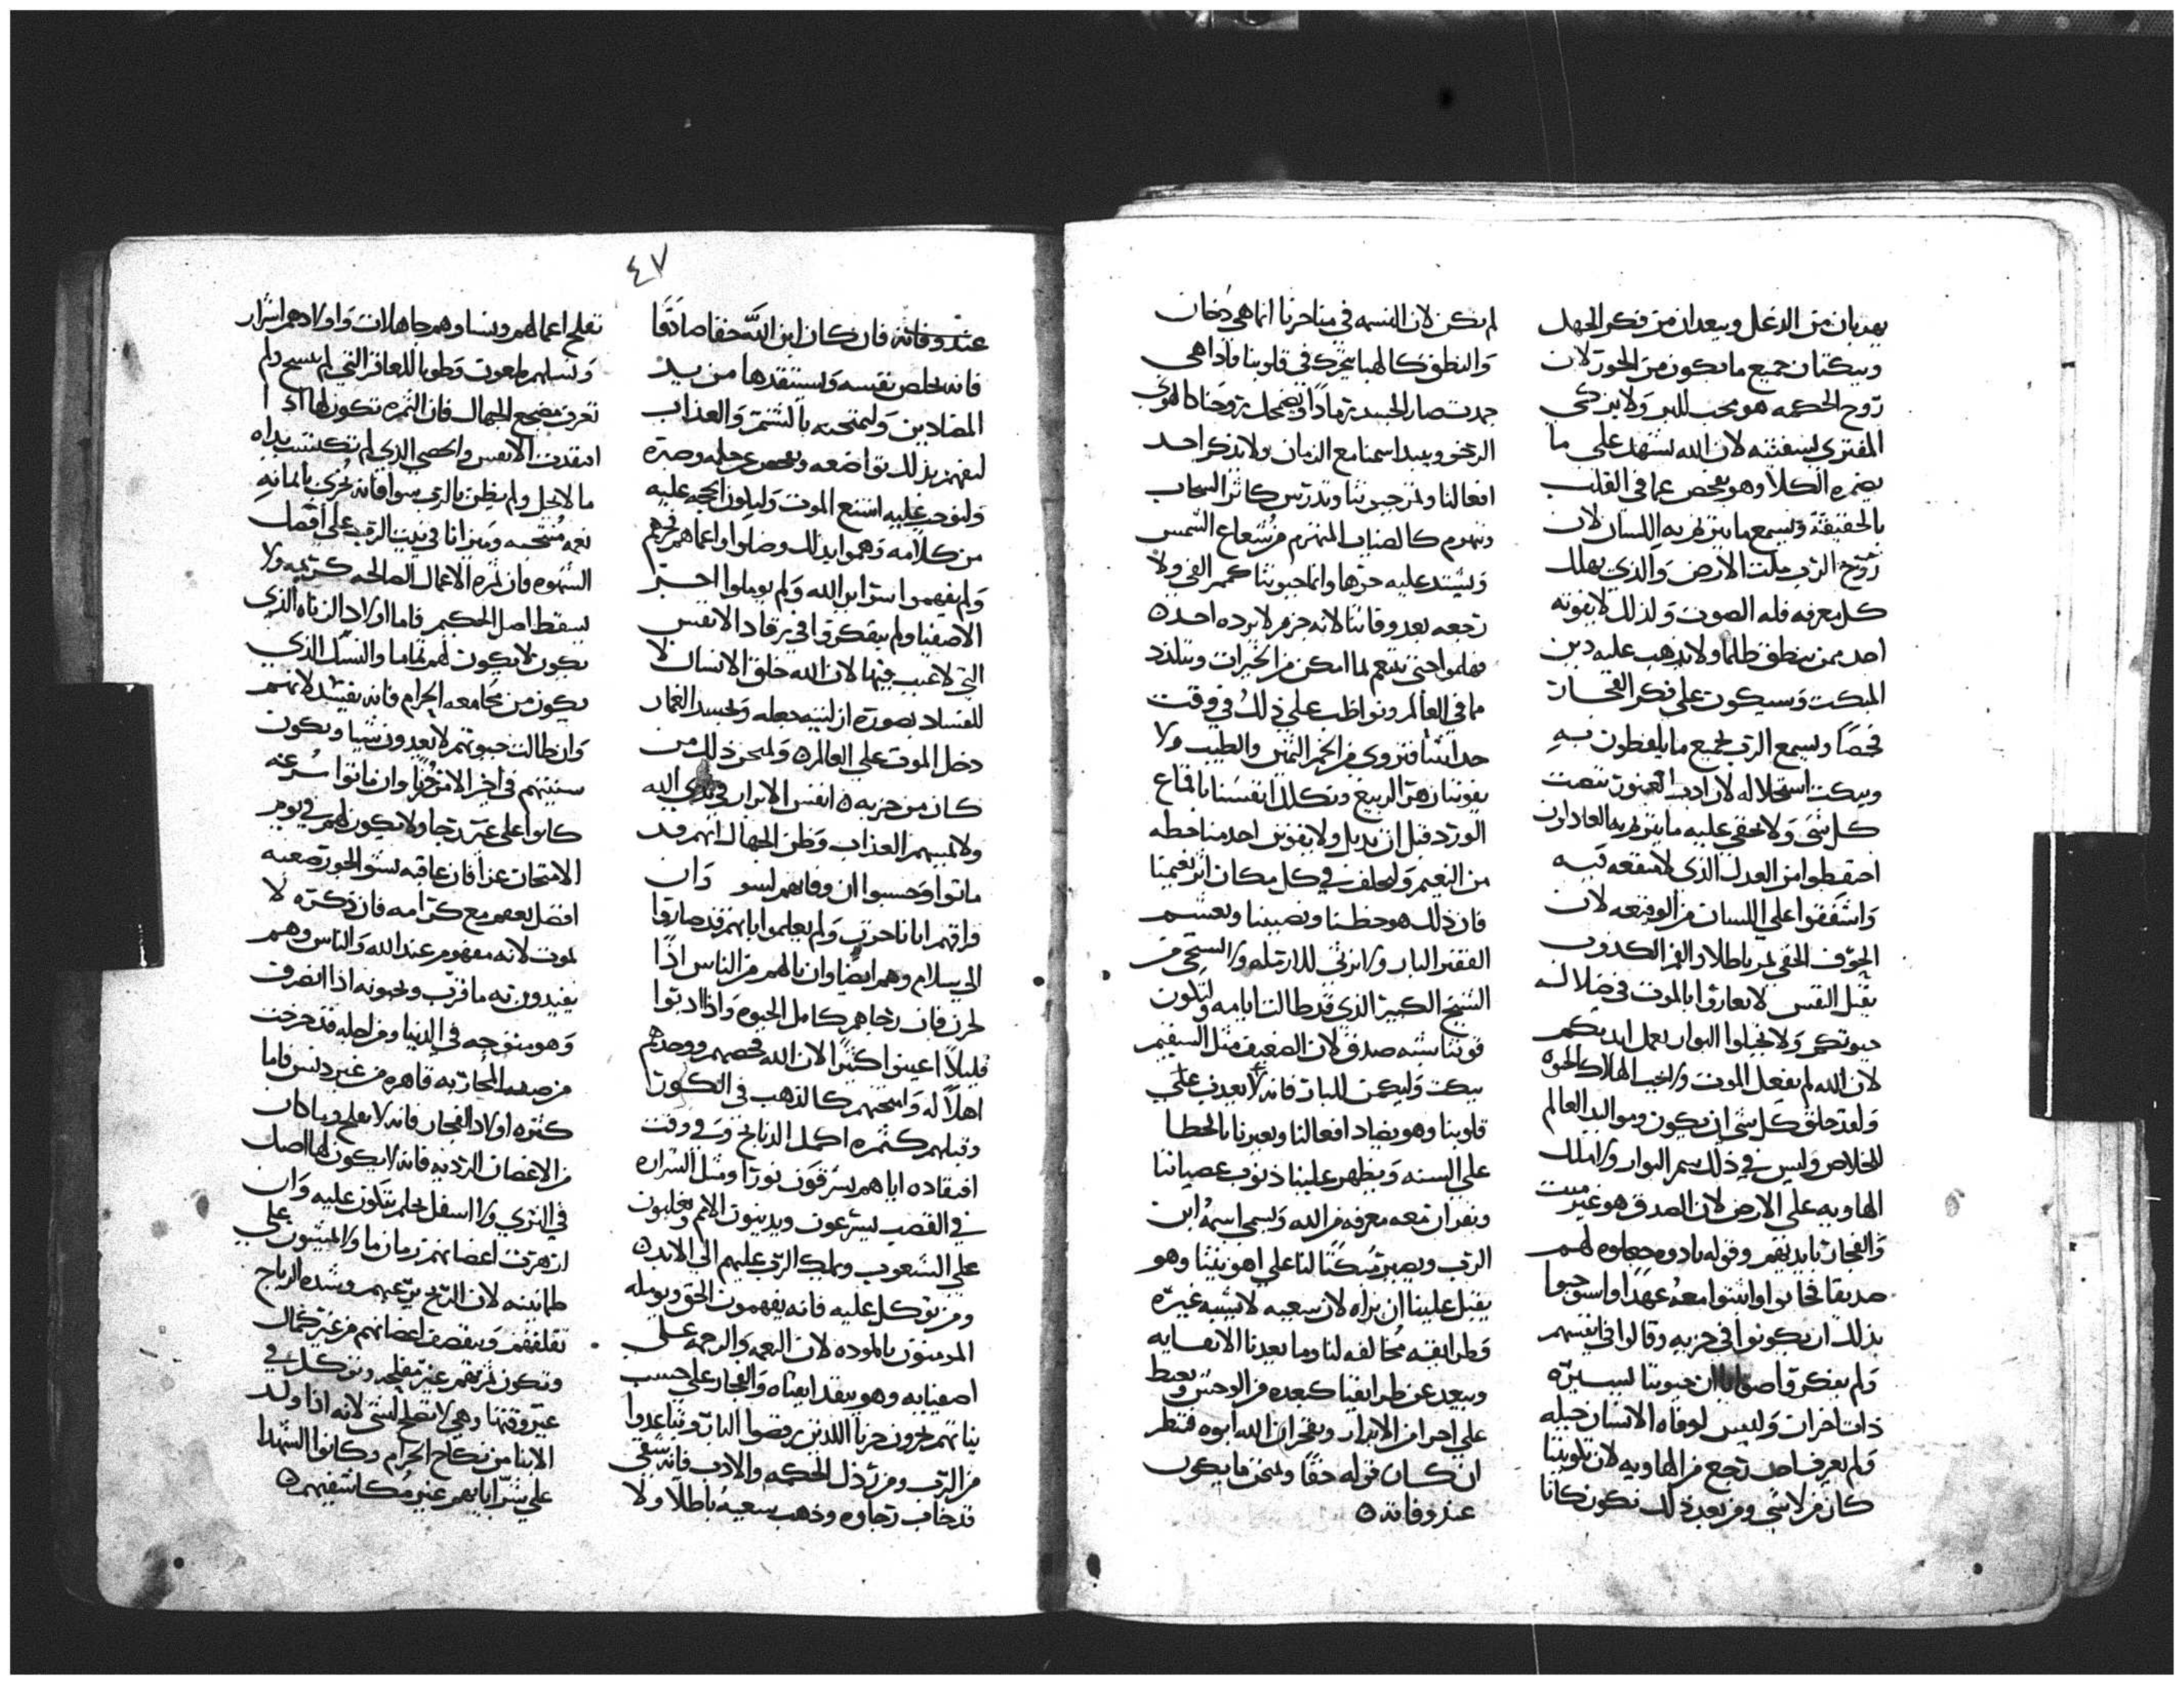 يهربان من الدغل ويبعدان من فكر الجهل
ويبكتان جميع ما يكون من الجور لان
روح الحكمه هو محب للبر ولا يزكي
المفتري لسفتنه لان الله يشهد على ما
يضمره الكلا وهو يفحص عما في القلب
بالحقيقة ويسمع ما يتزلم به اللسان لان
روح الرب ملت الارض والذي يهلل
كل معرفه فله الصوت ولذلك لا يفوته
احد ممن ينطق ظلما ولا يذهب عليه دين
المبكت وسيكون على فكر الفجار
فحصا ويسمع الرب لجميع ما يلفظون به
ويبكت استحلاله لان اذن تنصت
كل شي ولا تخفى عليه ما يتزلم به العادلون
احتفظوا من العدل الذي لا منفعه فيه
واشفقوا على اللسان من الوقيعه لان
الحرف الخفي لمر باطلا والفم الكذوب
يقتل النفس لا تغاروا بالموت في ضلاله
حيوتكم ولا تجلبوا البوار بعمل ايديكم
لان الله لم يفعل الموت ولا يحب الهلاك الحيوه
ولقد خلق كل شي ان يكون ومواليد العالم
للخلاص وليس في ذلك سم البوار ولا ملك
الهاويه على الارض لان الصدق هو غير ميت
والفجار بايديهم وقوله نادوه جعلوه لهم
صديقا فخابوا واثبتوا معه عهدا واستوجبوا
بذلك ان يكونوا في حزبه وقالوا في انفسهم
ولم يفكروا صوابا ان حيوتنا ليسيره
ذات احزان وليس لوفاه الانسان حيله
ولم يعرف احد رجع من الهاويه لان تكويننا
كان من لا شي ومن بعد ذلك نكون كانا
لم نكن لان النسمه في مناخرنا انما هي دخان
والنطق كالهبا يتحرك في قلوبنا فاذا هي
خمدت صار الجسد رمادا وتضمحل روحنا كالهوى
الرخو ويبيد اسمنا مع الزمان ولا يذكر احد
افعالنا وتمر حيوتنا وتدرس كاثر السحاب
وتهزم كالضباب المنهزم من شعاع الشمس
ويشتد عليه حرها وانما حيوتنا كممر الفي ولا
رجعه بعد وفاتنا لانه جزم لا يرده احد
فهلموا حتى نتنعم لما امكن من الخيرات ونتلذذ
مما في العالم ونواظب على ذلك في وقت
حداثتنا فنروى من الخمر الثمن والطيب ولا
يفوتنا زهر الربيع ونكلل انفسنا باقماع
الورد قبل ان يذبل ولا يفوتن احد منا حظه
من النعيم ولنخلف في كل مكان اثر نعيمنا
فان ذلك هو حظنا ونصيبنا ونغشم
الفقير البار ولا نرثي للارمله ولا نستحي من
الشيخ الكبير الذي قد طالت ايامه ولتكون
قوتنا سنه صدق لان الضعيف مثل السقيم
يبكت ولنكمن للبار فانه لا يعذب على
قلوبنا وهو يضاد افعالنا ويعيرنا بالخطا
على السنه ويظهر علينا ذنوب عصياننا
ونقر ان معه معرفه من الله ويسمى اسمه ابن
الرب ويصير مبكتا لنا على اهويتنا وهو
يثقل علينا ان نراه لان سعيه لا يشبه غيره
وطرايقه مخالفه لنا وما بعدنا الا نفايه
ويبعد عن طرايقنا كبعده من الوحش ويغبط
على اخر ان الابرار ويفخر ان الله ابوه فننظر
ان كان قوله حقا ولنمتحن ما يكون
عند وفاته
٤٧
عند وفاته فان كان ابن الله حقا صادقا
فانه يخلص نفسه ويستنقذها من يد
المضادين ولنمتحنه بالشتم والعذاب
لنفهم بذلك تواضعه ونفحص عن حلمه وصبره
ولنوجب عليه اشنع الموت ولتكون الحجه عليه
من كلامه وهموا بذلك وضلوا واعماهم شرهم
ولم يفهموا سر ابن الله ولم يوملوا اجر
الاصفيا ولم يتفكروا في يرقاد الانفس
التي لا عيب فيها لان الله خلق الانسان لا
للفساد بصوره ازليته جعله وبحسد الغمار
دخل الموت على العالم ولمتحن ذلك من
كان من حزبه انفس الابرار في يدي الله
ولا يمسهم العذاب وظن الجهال انهم قد
ماتوا وحسبوا ان وفاتهم لسو وان
فراقهم ايانا حزن ولم يعلموا بانهم قد صاروا
الى سلام وهم ايضا وان نالهم من الناس اذا
لحزن فان رجاهم كامل الحيوه واذا ادبوا
قليلا اعينوا كثيرا لان الله فحصهم ووجدهم
اهلا له وامتحنهم كالذهب في الكور
وقبلهم كثمره اكمل الذبايح وفي وقت
افتقاده اياهم يشرقون نورا ومثل الشراره
في القصب ليسرعون ويدينون الامم ويغلبون
على الشعوب ويملك الرب عليهم الى الابد
ومن توكل عليه فانه يفهمون الحق ويوصله
المومنون بالموده لان النعمه والرحمه على
اصفيايه وهو يتفقد ابقياه والفجار على حسب
نياتهم يجزون حزنا الذين رفضوا البار وتباعدوا
من الرب ومن رذل الحكمه والادب فانه شقي
قد خاب رجاوه وذهب سعيه باطلا ولا
تفلح اعمالهم ونساوهم جاهلات واولادهم اشرار
ونسلهم ملعون وطوبا للعاقر التي لم تتسخ ولم
تعرف مضجع الجهال فان الثمره تكون لها اذا
افتقدت الانفس والخصي الذي لم تكتسب يداه
ما لا يحل ولم يظن بالرب سوا فانه يجزى بامانته
نعمه منتخبه وميراثا في بيت الرب على افضل
الشهوه فان ثمره الاعمال الصالحه كريمه ولا
يسقط اصل الحكيم فاما اولاد الزناه الذي
يكون لا يكون لهم تماما والنسل الذي
يكون من مجامعه الحرام فانه يفسد لانهم
وان طالت حيوتهم لا يعدون شيا ويكون
سنينهم في اخر الامر خزيا وان ماتوا سرعه
كانوا على غير رجا ولا يكون لهم في يوم
الامتحان عزا فان عاقبه نسو الجور صعبه
افضل بعهم مع كرامه فان ذكره لا
يموت لانه مفهوم عند الله والناس وهم
يقتدون به ما قرب ويحبونه اذا انصرف
وهو متوجه في الدنيا ومن اجله قد خرجت
من صفه المحاربه قاهره من غير دنس فاما
كثره اولاد الفجار فانه لا يفلح وما كان
من الاغصان الرديه فانه لا يكون لها اصل
في الثري ولا اسفل محكم يتكون عليه وان
ازهرت اغصانهم زمانا ولا يثبتون على
طمانينه لان الريح يزعجهم وشده الرياح
تقلقهم وتقصف اغصانهم من غير كمال
وتكون ثمرتهم غير مفلحه وتوكل في
غير وقتها وهي لا تصلح لشي لانه اذا ولد
الابنا من نكاح الحرام وكانوا الشهدا
على شر ابايهم عند مكاشفتهم